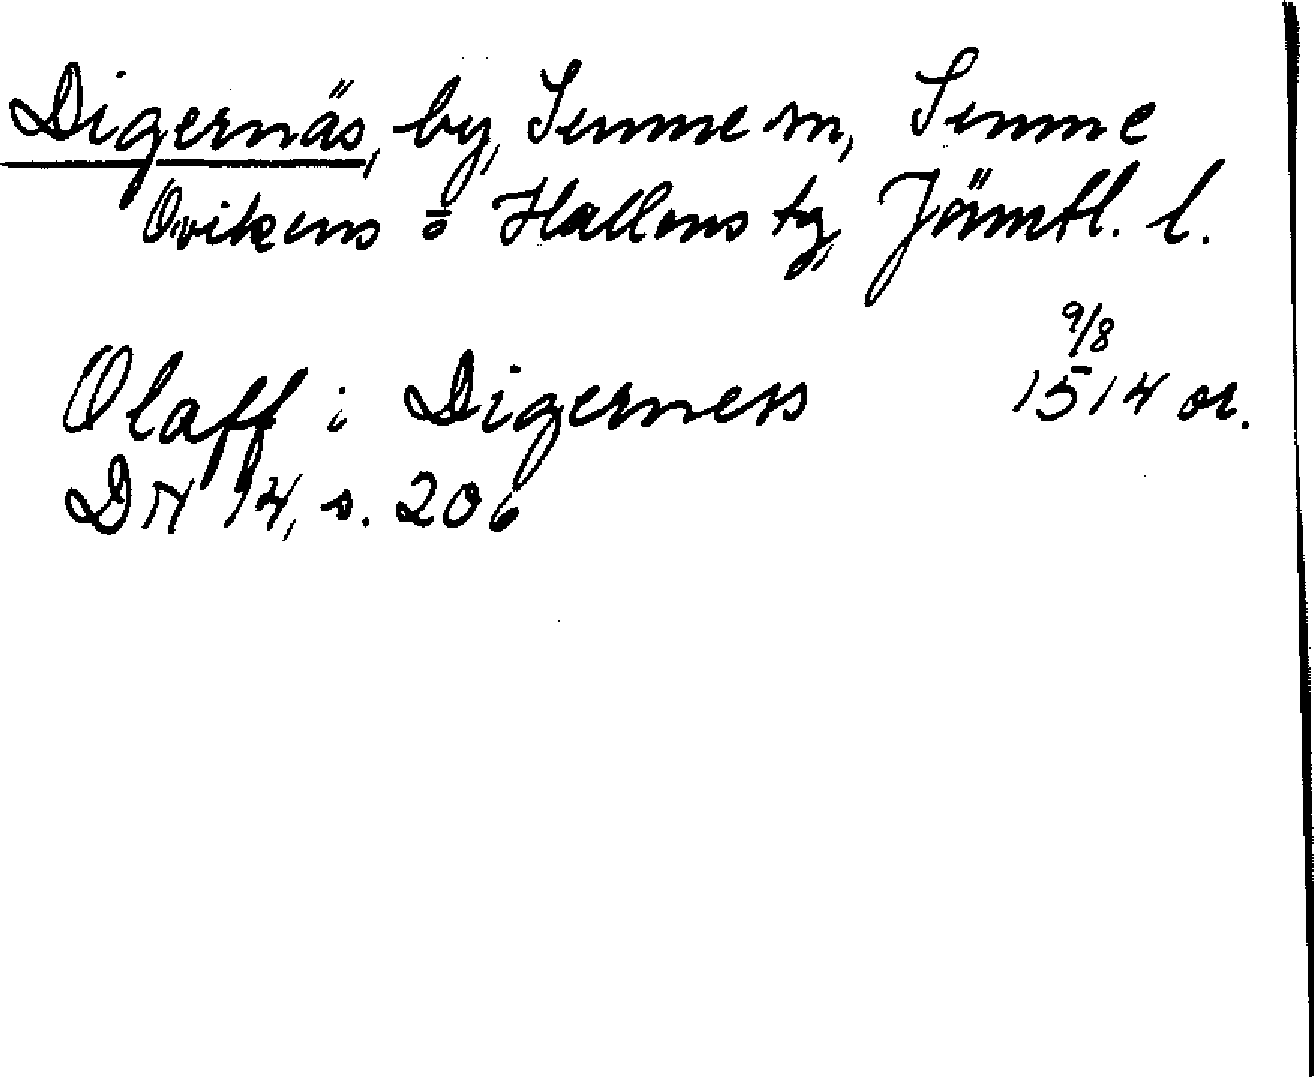 Digernäs, by, Sunne sn, Sunne
Ovikens o Hallens tg, Jämtl. l.
9/8
Olaff i Digerness 1514 or.
DN 14, s. 206